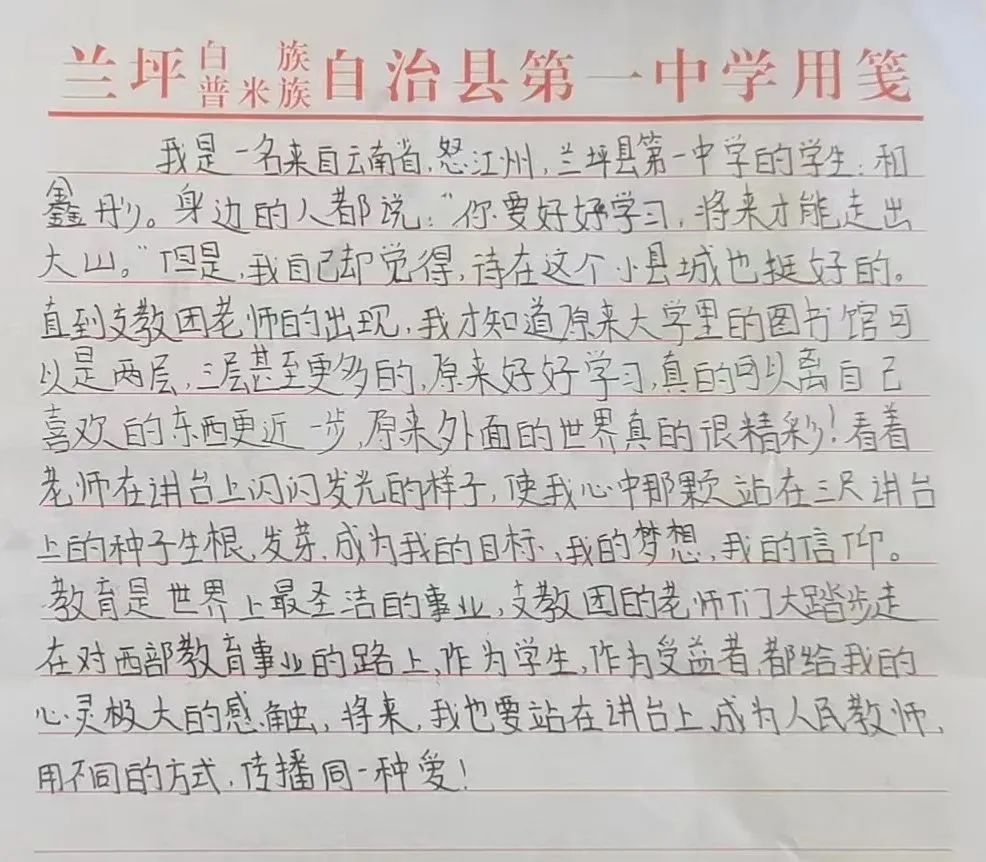 兰坪白族普米族自治县第一中学用笺
我是一名来自云南省,怒江州,兰坪县第一中学的学生:和
鑫彤。身边的人都说:“你要好好学习,将来才能走出
大山。”但是,我自己却觉得,待在这个小县城也挺好的。
直到支教团老师的出现,我才知道原来大学里的图书馆可
以是两层,三层甚至更多的,原来好好学习,真的可以离自己
喜欢的东西更近一步,原来外面的世界真的很精彩!看着
老师在讲台上闪闪发光的样子,使我心中那颗站在三尺讲台
上的种子生根、发芽,成为我的目标,我的梦想,我的信仰。
教育是世界上最圣洁的事业,支教团的老师们大踏步走
在对西部教育事业的路上,作为学生,作为受益者,都给我的
心灵极大的感触,将来,我也要站在讲台上,成为人民教师,
用不同的方式,传播同一种爱!